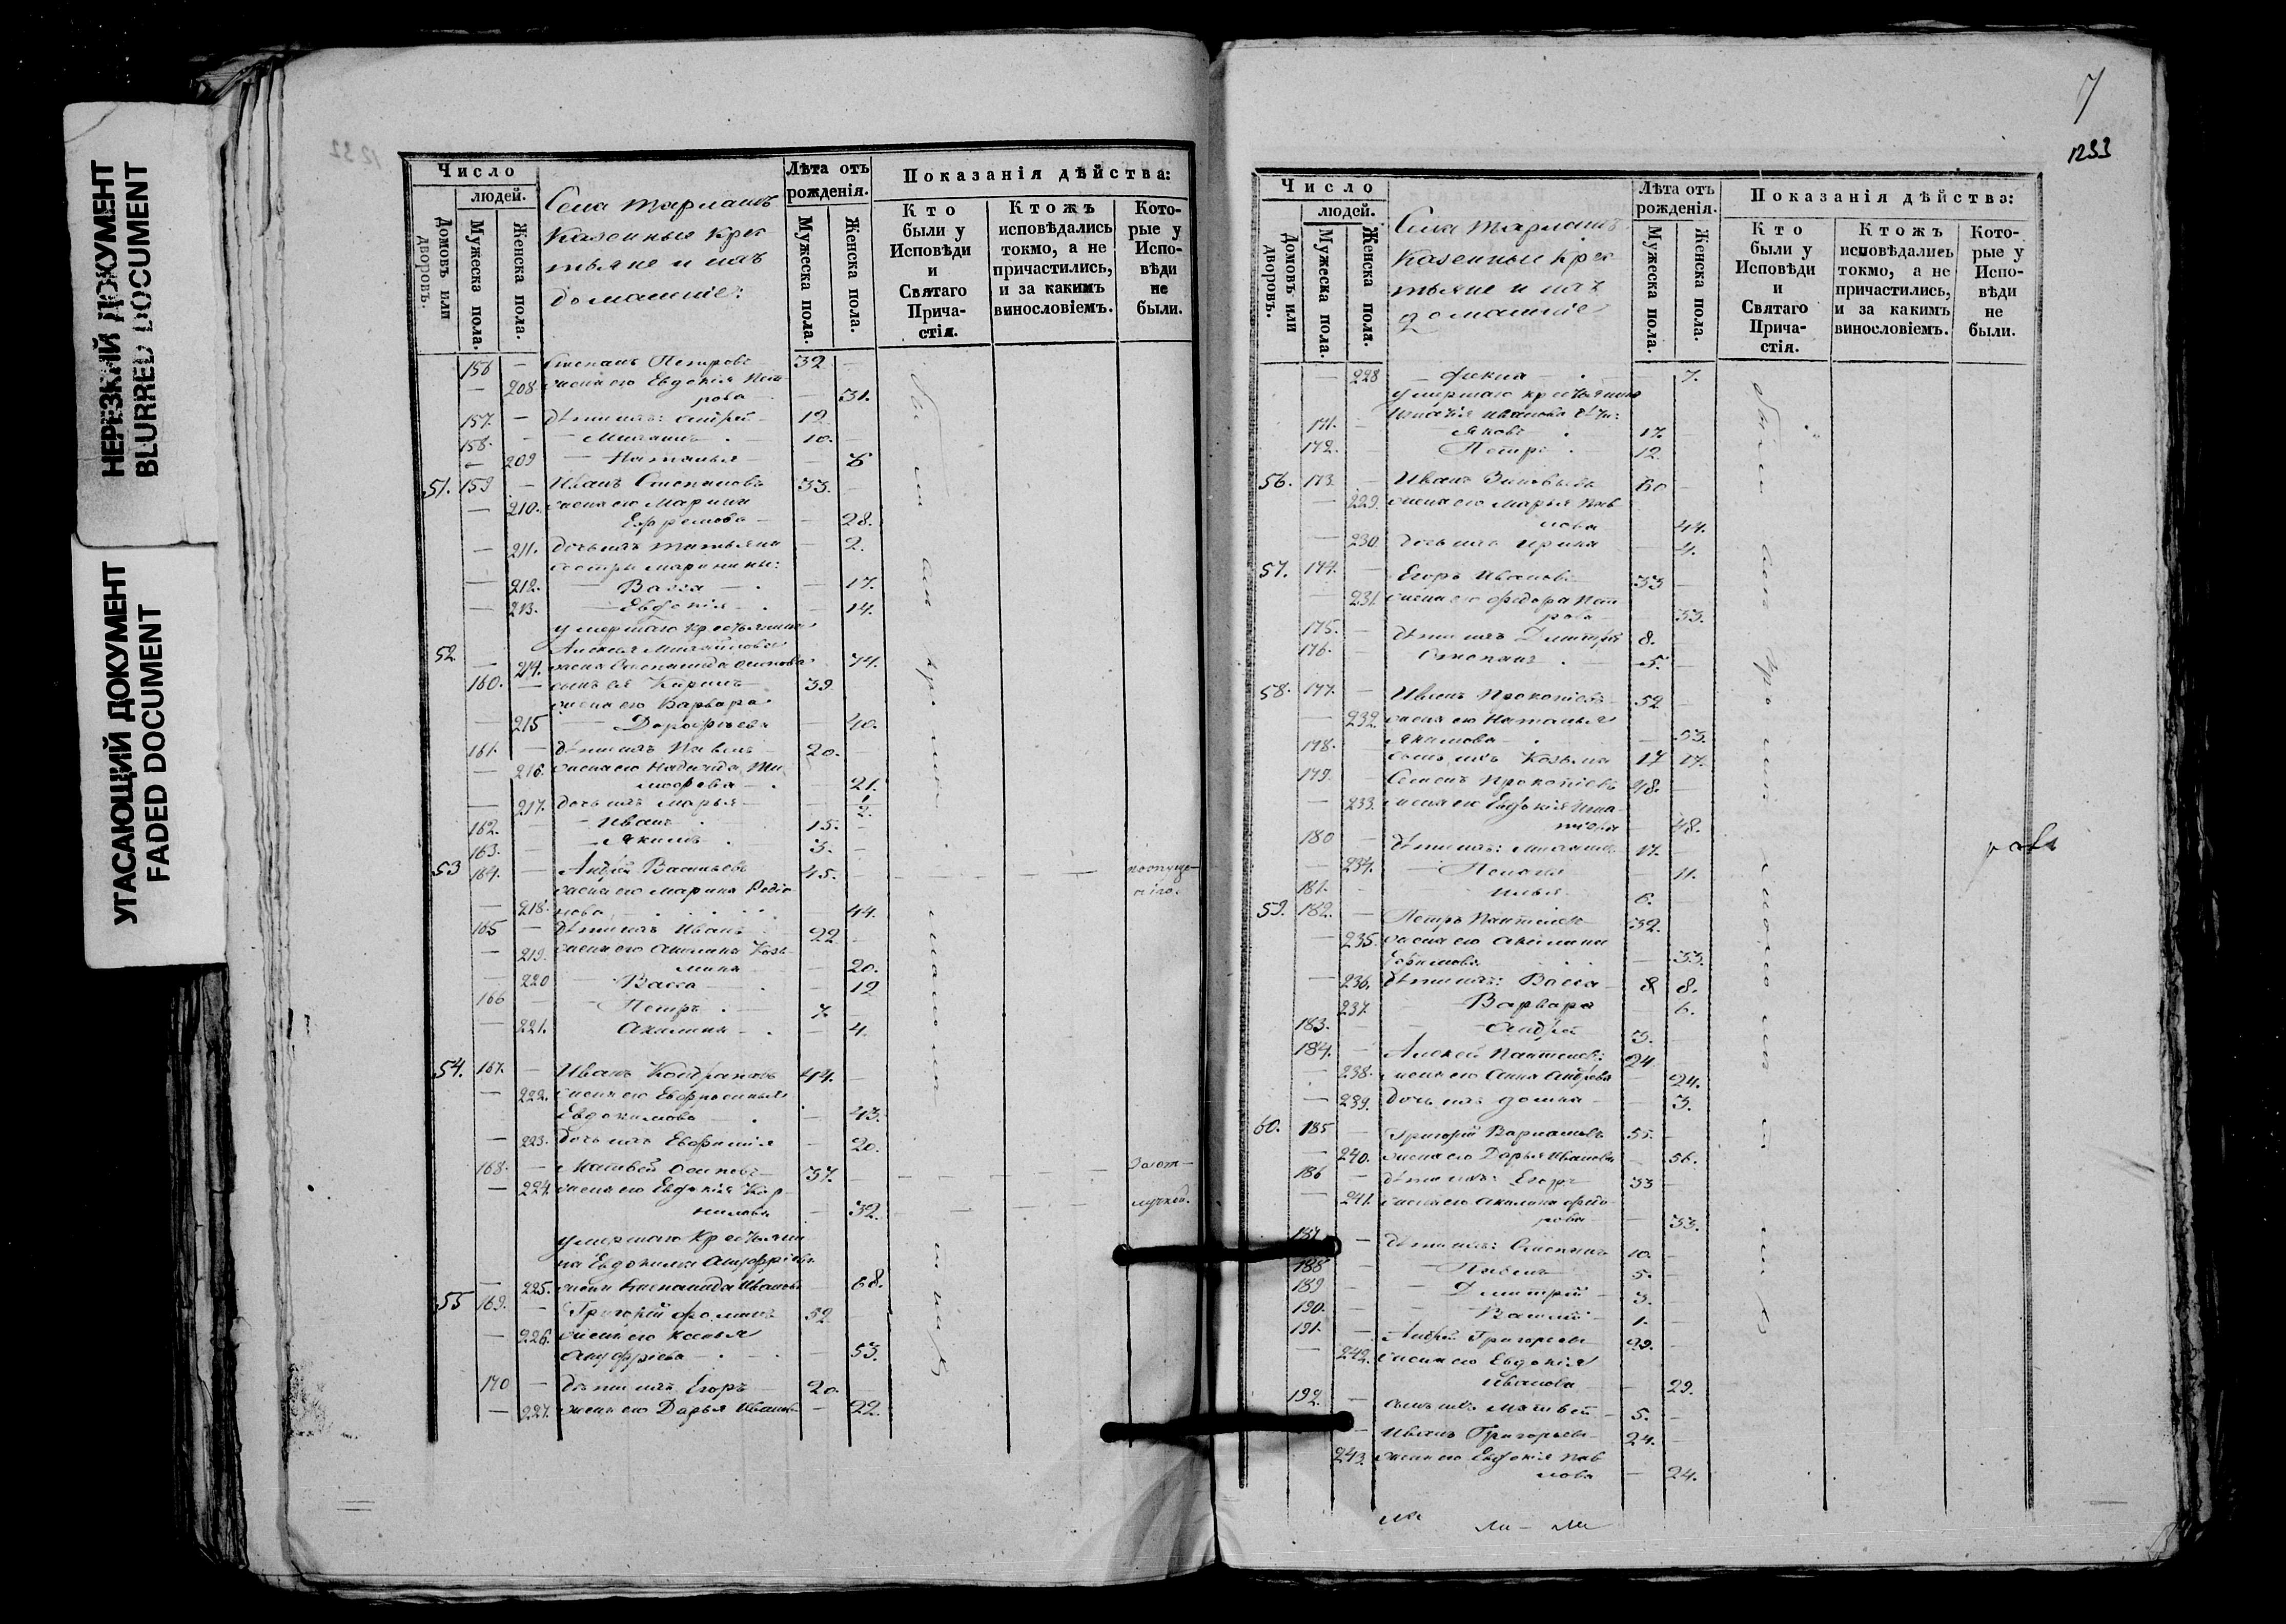 НЕРЕЗКИЙ ДОКУМЕНТ
BLURRED DOCUMENT
УГАСАЮЩИЙ ДОКУМЕНТ
FADED DOCUMENT
Число
людей.
Домовъ или дворовъ.
Мужеска пола.
Женска пола.
Села
Казенные крес
тьяне и ихъ
домашніе:
Лѣта отъ рожденія.
Мужеска пола.
Женска пола.
Показанія дѣйства:
Кто были у Исповѣди и Святаго Прича-стія.
Ктожъ исповѣдались токмо, а не причастились, и за какимъ винословіемъ.
Кото-рые у Испо-вѣди не были.
156 — Степанъ Петровъ 32 —
— 208 жена его Евдокія Пет-
рова — 31.
157. — дѣти ихъ: Андрей 12
158. — Михаилъ 10. —
— 209 — Наталья — 6
51. 159 — Иванъ Степановъ 33. —
— 210. жена его Марина
Ефремова — 28.
— 211. дочь ихъ Татьяна — 2.
сестры Маринины:
— 212. — Васса — 17.
— 213. — Евдокія — 14.
умершаго крестьянина
52 Алексея Михайлова
— 214. жена 74.
160. — сынъ ея Кирилъ 39
жена его Варвара
— 215 Дорофеева — 40.
161. — дѣти ихъ Павелъ 20.
— 216. жена его Надежда Ти
мофеева — 21.
— 217. дочь ихъ Марья — 1/2
162. — Иванъ 15. —
163. — Якимъ 3. —
53 164. — Андрей Васильевъ 45.
жена его Марина Родіо
— 218. нова 44.
165 — дѣти ихъ Иванъ 22 —
— 219. жена его Акилина Козь
мина — 20.
— 220 Васса — 12
166 — Петръ 7.
— 221. Акилина — 4.
54. 167. — Иванъ 44. —
— 222. жена его Евфросинья
Евдокимова — 43.
— 223. дочь ихъ Евфимія — 20.
168. — Матвей Осиповъ 37.
— 224. жена его Евдокія Кор
нилова — 32.
умершаго крестьяни
на Евдокима Ануфріева
— 225. жена Иванова 68.
55 169. — Григорій Фоминъ 52
— 226. жена его Ксенья
Ануфріева — 53.
170 — дѣти ихъ Егоръ 20.
— 227. жена его Дарья Иванова — 22.
7
1233
Число
людей.
Домовъ или дворовъ.
Мужеска пола.
Женска пола.
Села
Казенные крес
тьяне и ихъ
домашніе
Лѣта отъ рожденія.
Мужеска пола.
Женска пола.
Показанія дѣйства:
Кто были у Исповѣди и Святаго Прича-стія.
Ктожъ исповѣдались токмо, а не причастились, и за какимъ винословіемъ.
Кото-рые у Испо-вѣди не были.
— 228 — Фекла 7.
умершаго крестьянина
Игнатія Иванова дѣти:
171. — Яковъ 17.
172. Петръ 12.
56. 173. — Иванъ Зиновьевъ 60
— 229. жена его Марья Пав
лова 44.
— 230. дочь ихъ Ирина — 4.
57. 174. — Егоръ Ивановъ 33
231. жена его Федора Пет
рова 33.
175. — дѣти ихъ Димитрій 8.
176. — Степанъ 5.
58. 177. — Иванъ Прокопіевъ 52
— 232. жена его Наталья
Якимова 53.
178. — сынъ ихъ Козьма 17 17.
179. — Семенъ Прокопіевъ 48.
— 233. жена его Евдокія Игна
тіева 48.
180 — дѣти ихъ: Михаилъ 17.
— 234. 11.
181. — Илья 6.
59. 182. — Петръ 32.
— 235. жена его Акилина
Ефимова 33.
— 236. дѣти ихъ: Васса 8 8.
237. Варвара — 6.
183. — Андрей 3.
184. — Алексей 24
238. жена его Анна Андреева 24.
— 239. дочь ихъ Домна — 3.
60. 185 — Григорій Варламовъ 55.
— 240. жена его Дарья Иванова 56.
186 — дѣти ихъ: Егоръ 33
— 241. жена его Акилина Федо
рова — 33.
187 — дѣти ихъ: Степанъ 10.
188 — Павелъ 5.
189 — Димитрій 3.
190. — Василій 1.
191. — Андрей Григорьевъ 29.
— 242. жена его Евдокія
Иванова — 29.
192. — сынъ ихъ Матвей 5.
— Иванъ Григорьевъ 24.
243. жена его Евдокія Пав
лова — 24.